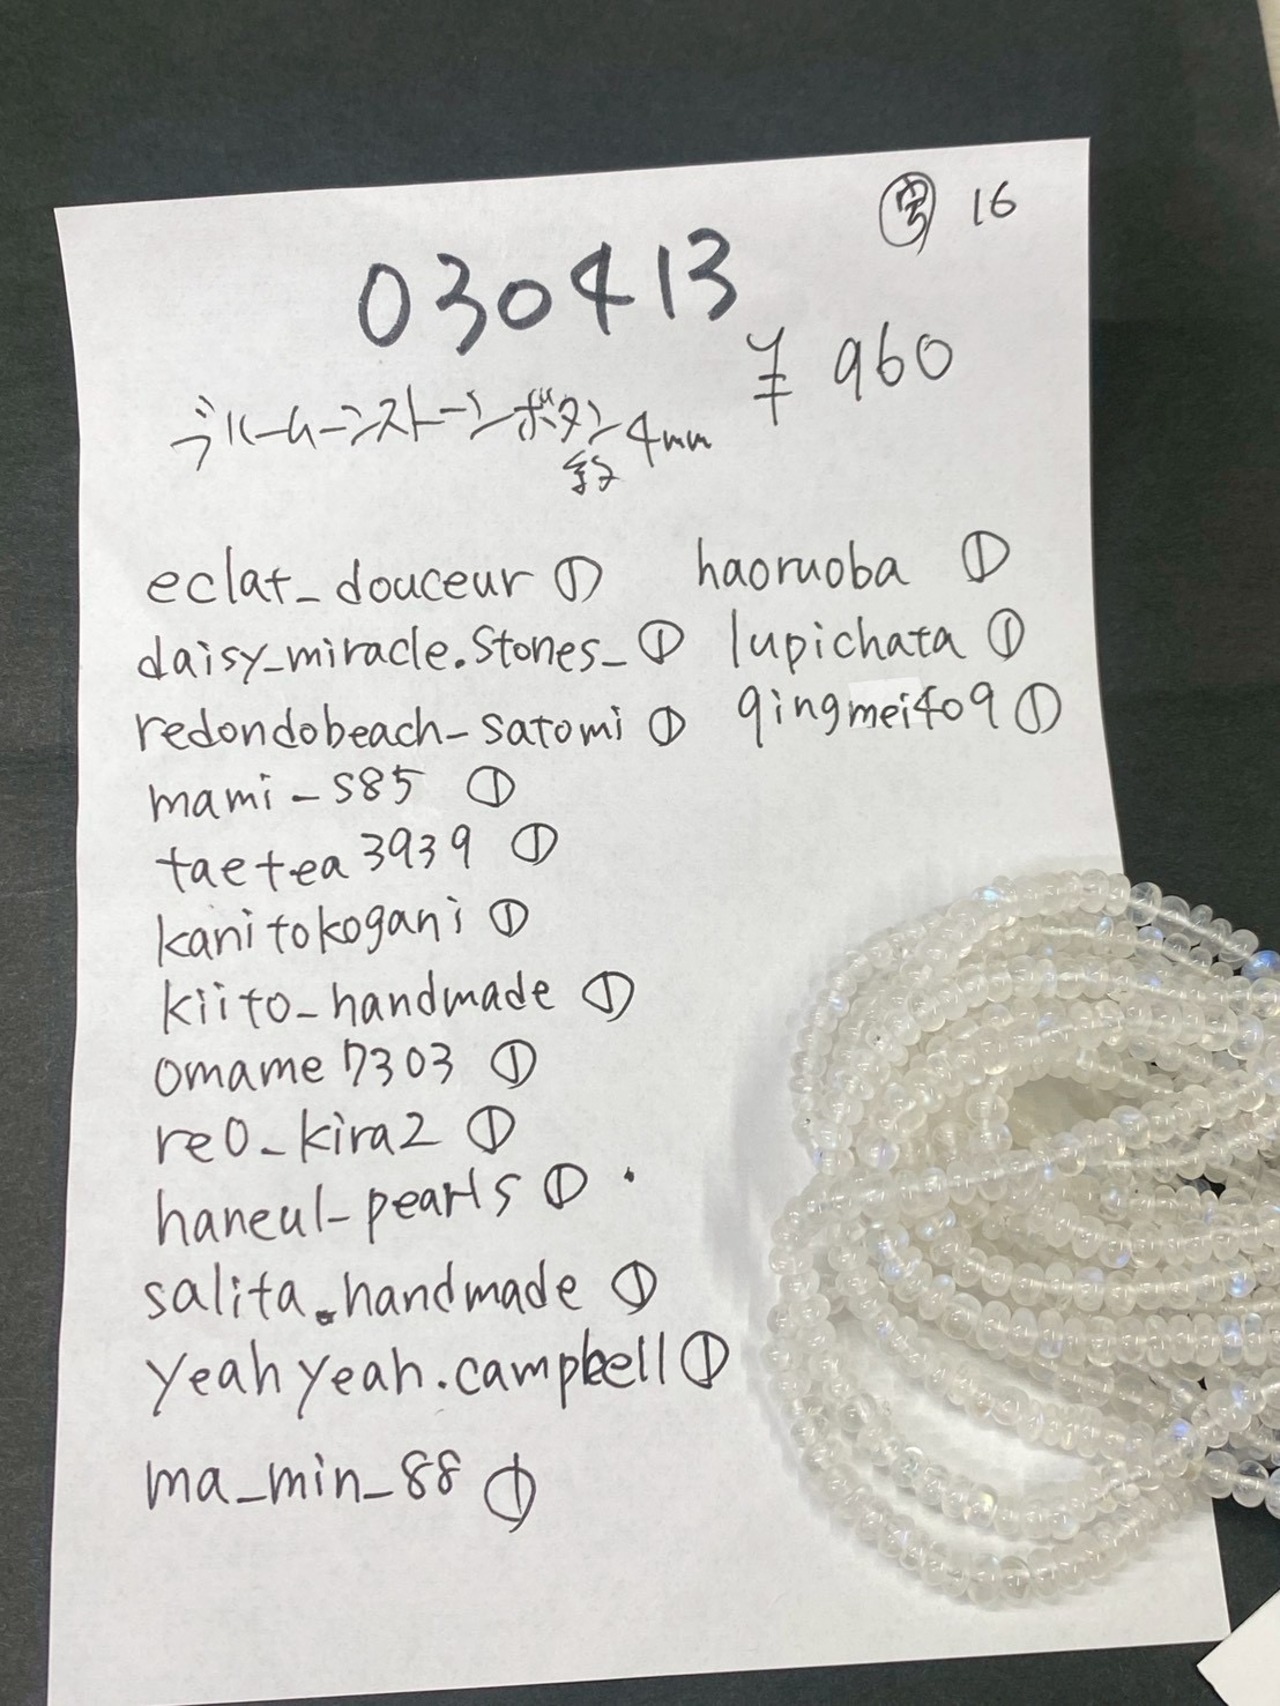 粤 16
030413
¥ 960
ブルームーンストーンボタン 4mm
eclat_douceur ①
daisy_miracle.stones_ ①
redondobeach_satomi ①
mami_s85 ①
taetea3939 ①
kanitokogani ①
kiito_handmade ①
omame7303 ①
re0_kira2 ①
haneul_pearls ①
salita.handmade ①
yeahyeah.campbell ①
ma_min_88 ①
haoruoba ①
lupichata ①
qingmei409 ①